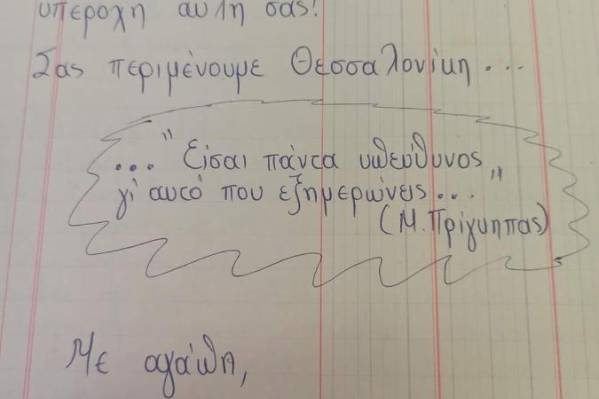 υπέροχη αυλή σας!
Σας περιμένουμε Θεσσαλονίκη...
..." Είσαι πάντα υπεύθυνος
γι' αυτό που εξημερώνεις..."
(Μ. Πρίγκηπας)
Με αγάπη,